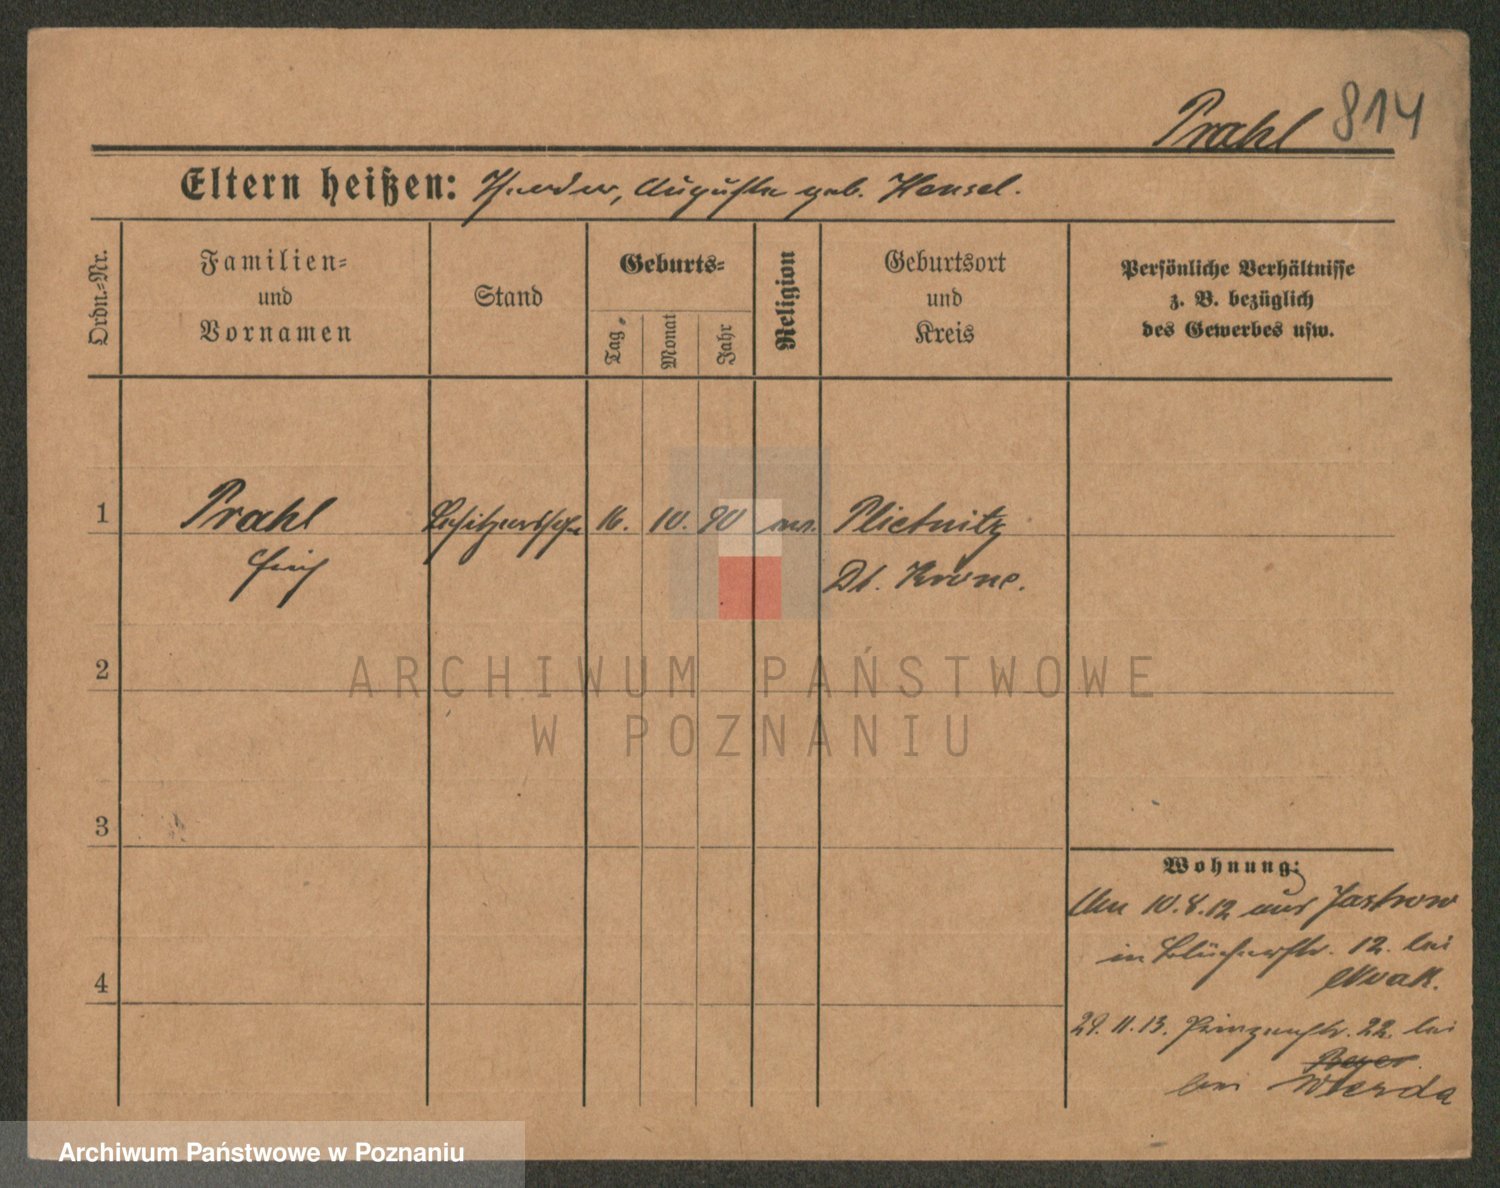 Prahl 814
Eltern heißen: Theodor, Auguste geb. Hensel.
Ordn.-Nr.
Familien-
und
Vornamen
Stand
Geburts-
Tag
Monat
Jahr
Religion
Geburtsort
und
Kreis
Persönliche Verhältnisse
z. B. bezüglich
des Gewerbes usw.
1 Prahl Besitzerssohn 16. 10. 90 ev. Plietnitz
Erich Dt. Krone.
2
3
4
Wohnung:
Am 10.8.12 aus Jastrow
in Blücherstr. 12. bei
Nvak.
29.11.13. Prinzenstr. 22. bei
Beyer
bei Wierda
ARCHIWUM PAŃSTWOWE
W POZNANIU
Archiwum Państwowe w Poznaniu